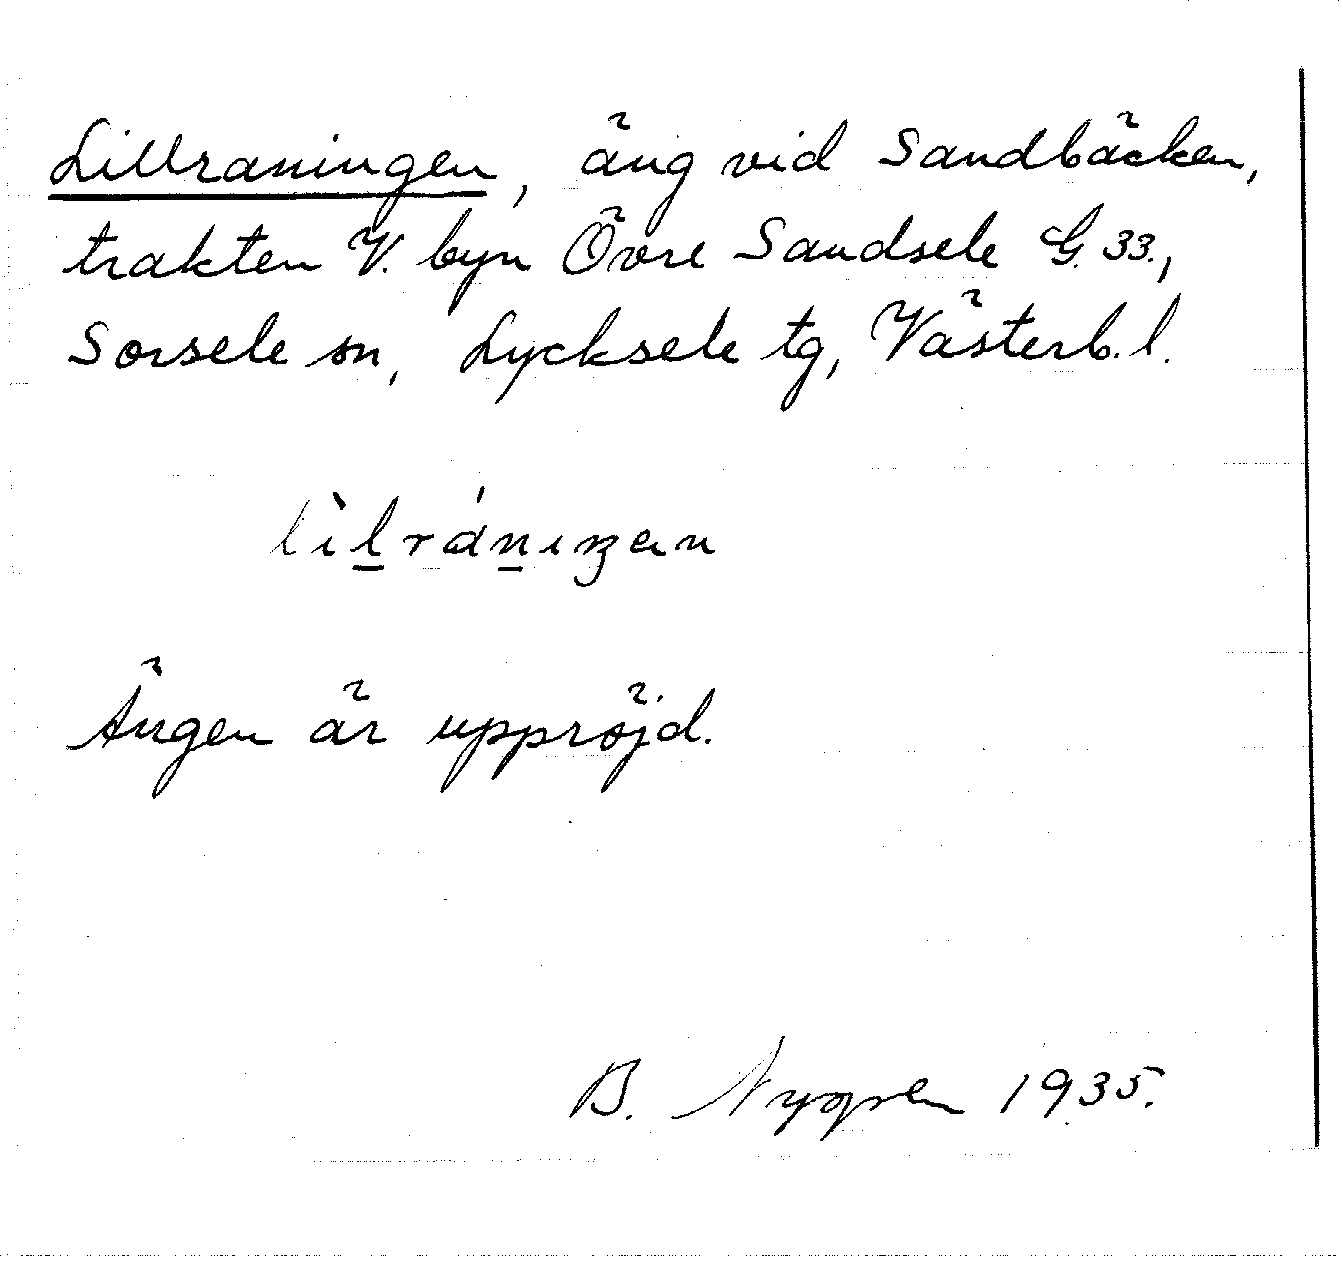 Lillraningen, äng vid Sandbäcken,
trakten V. byn Övre Sandsele G. 33.,
Sorsele sn, Lycksele tg, Västerb. l.
lìlrániŋen
Ängen är uppröjd.
B. Nygren 1935.